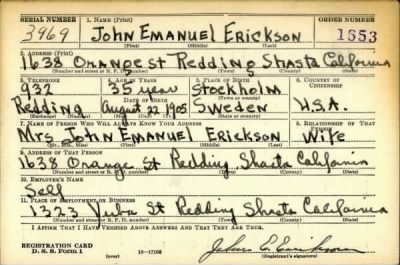 SERIAL NUMBER 1. NAME (Print) ORDER NUMBER
3969 JOHN EMANUEL ERICKSON 1353
(First) (Middle) (Last)
2. ADDRESS (Print)
1638 Orange St Redding Shasta California
(Number and street or R. F. D. number) (Town) (County) (State)
3. TELEPHONE 4. AGE IN YEARS 5. PLACE OF BIRTH 6. COUNTRY OF CITIZENSHIP
932 35 year Stockholm
DATE OF BIRTH (Town or county)
Redding August 22 1905 Sweden U.S.A.
(Exchange) (Mo.) (Day) (Yr.) (State or country)
7. NAME OF PERSON WHO WILL ALWAYS KNOW YOUR ADDRESS 8. RELATIONSHIP OF THAT PERSON
Mrs John Emanuel Erickson Wife
(Mr., Mrs., Miss) (First) (Middle) (Last)
9. ADDRESS OF THAT PERSON
1638 Orange St Redding Shasta California
(Number and street or R. F. D. number) (Town) (County) (State)
10. EMPLOYER'S NAME
Self
11. PLACE OF EMPLOYMENT OR BUSINESS
St Redding Shasta California
(Number and street or R. F. D. number) (Town) (County) (State)
I AFFIRM THAT I HAVE VERIFIED ABOVE ANSWERS AND THAT THEY ARE TRUE.
REGISTRATION CARD
D. S. S. Form 1 16—17105 John E. Erickson
(Registrant's signature)